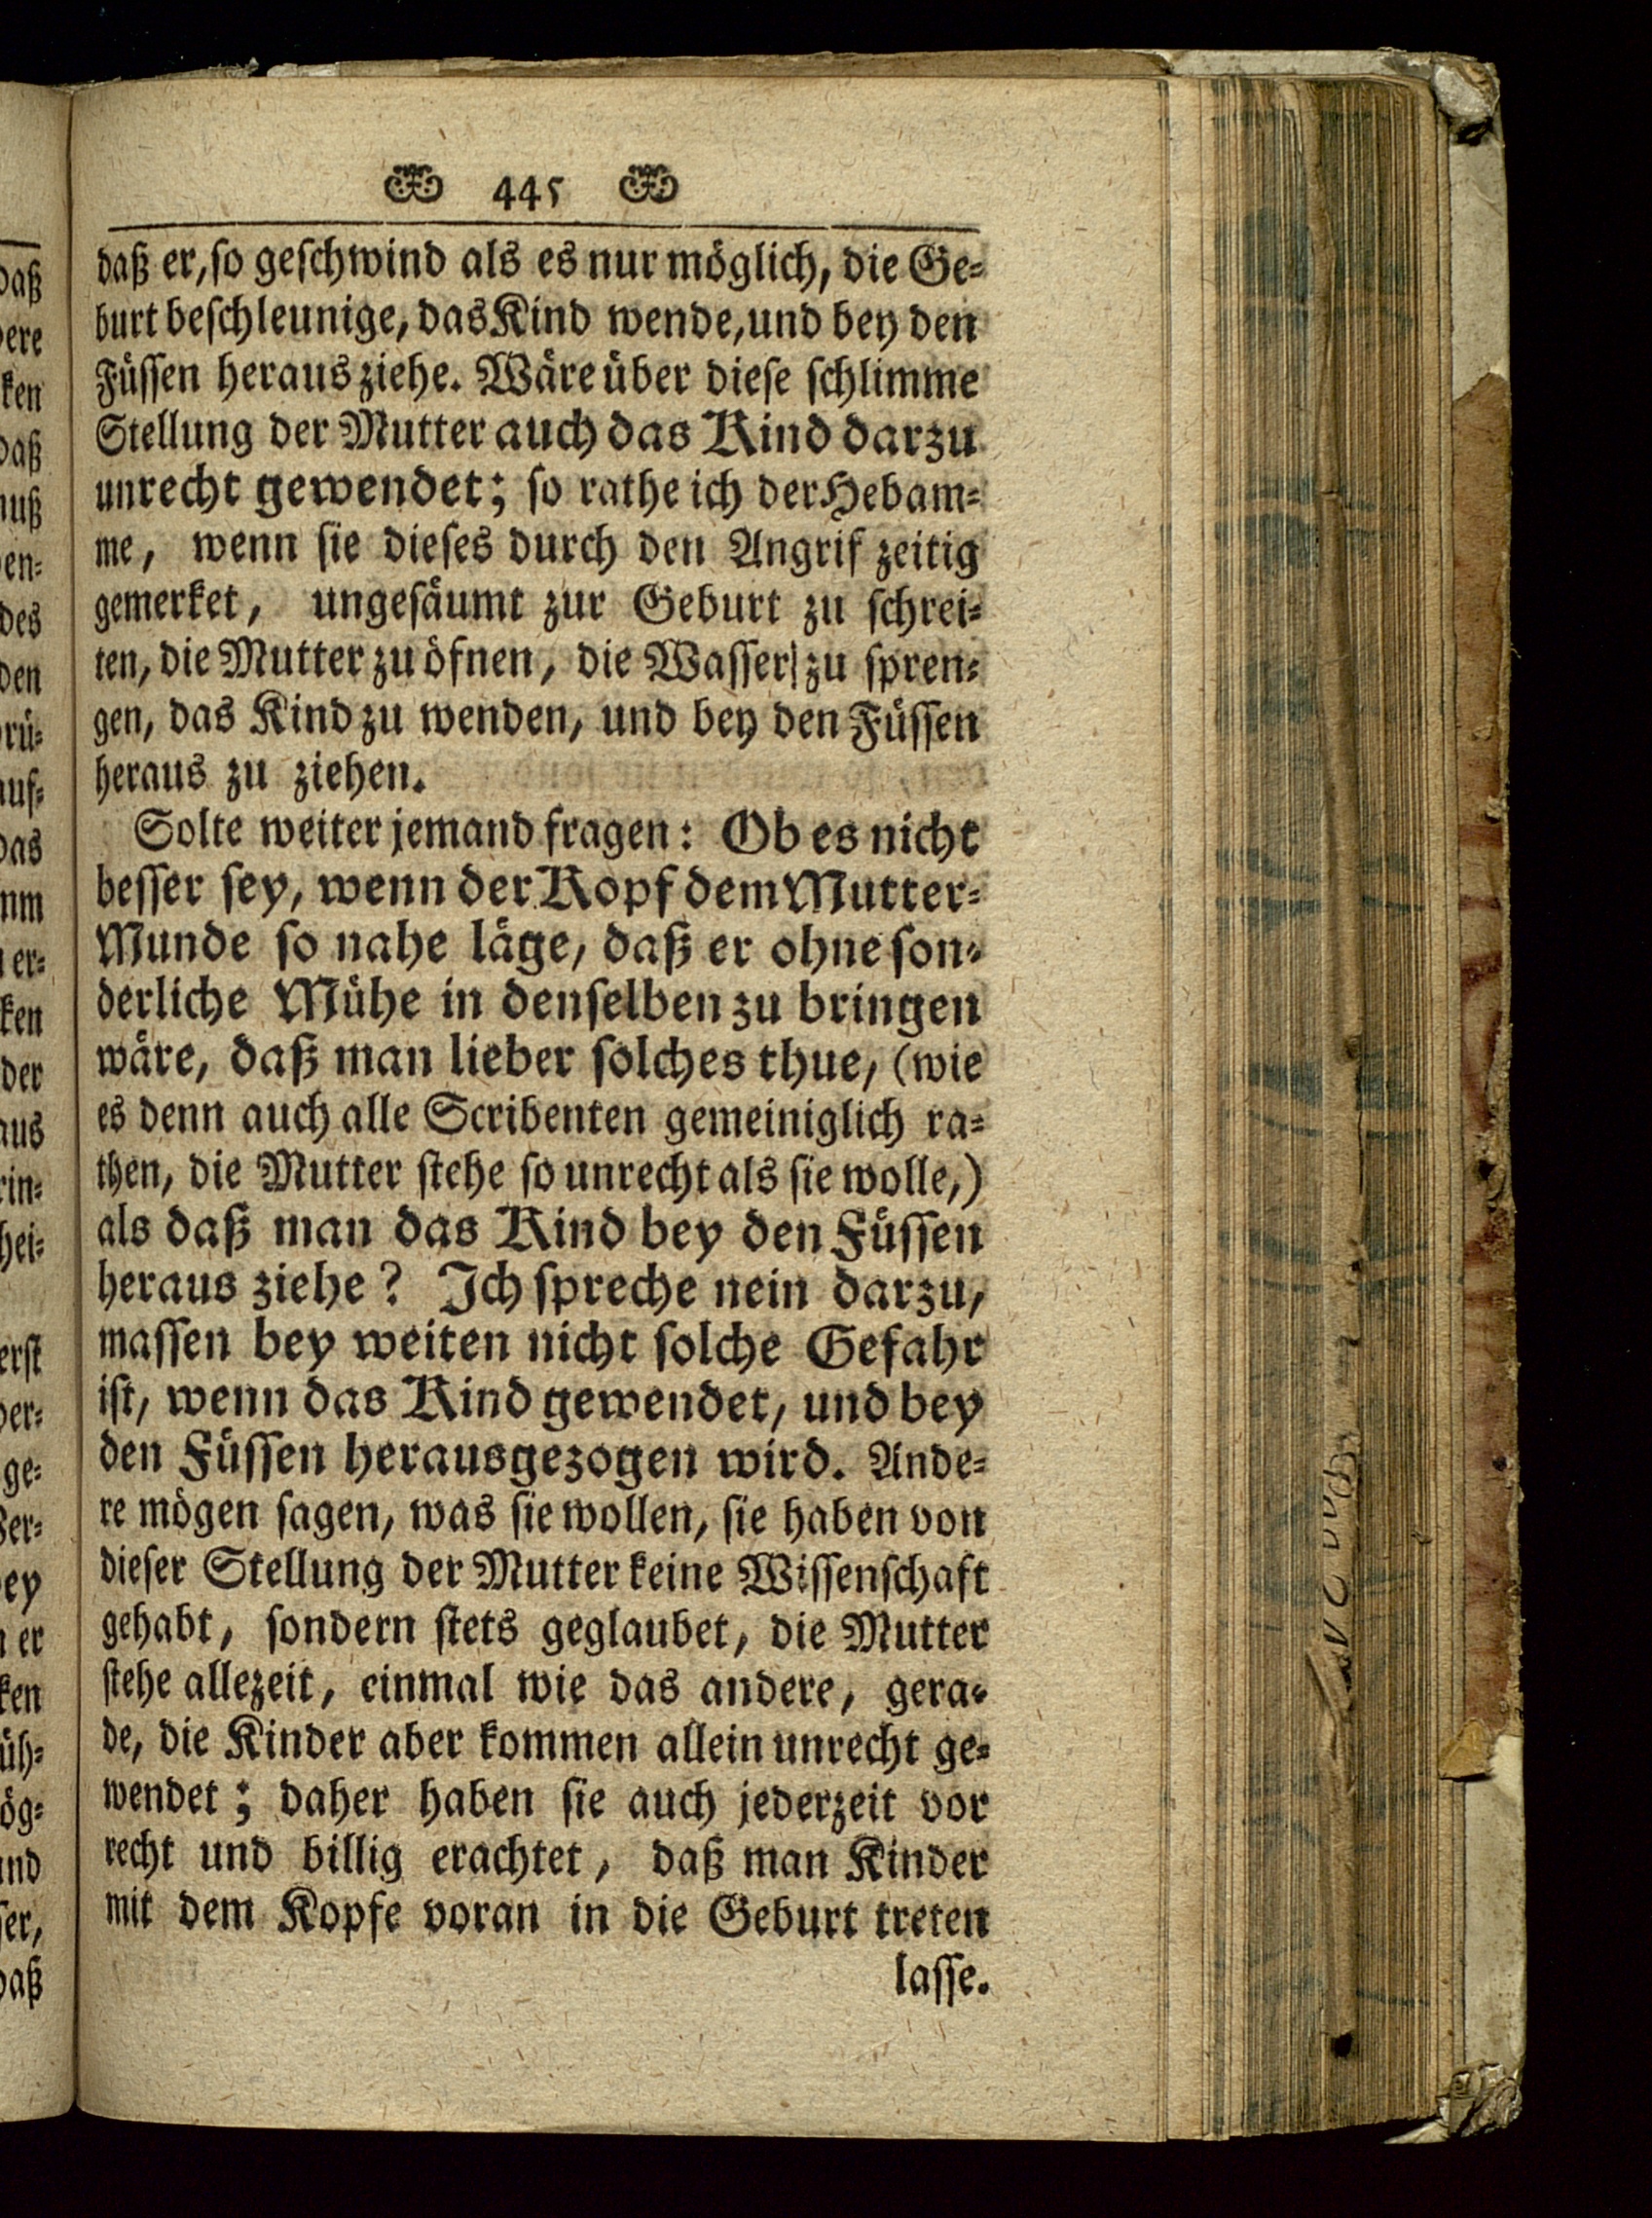 445
daß er, ſo geſchwind als es nur möglich, die Ge-
burt beſchleunige, das Kind wende, und bey den
Füſſen heraus ziehe. Wäre über dieſe ſchlimme
Stellung der Mutter auch das Kind darzu
unrecht gewendet; ſo rathe ich der Hebam-
me, wenn ſie dieſes durch den Angrif zeitig
gemerket, ungeſäumt zur Geburt zu ſchrei-
ten, die Mutter zu öfnen, die Waſſer zu ſpren-
gen, das Kind zu wenden, und bey den Füſſen
heraus zu ziehen.
Solte weiter jemand fragen: Ob es nicht
beſſer ſey, wenn der Kopf dem Mutter-
Munde ſo nahe läge, daß er ohne ſon-
derliche Mühe in denſelben zu bringen
wäre, daß man lieber ſolches thue, (wie
es denn auch alle Scribenten gemeiniglich ra-
then, die Mutter ſtehe ſo unrecht als ſie wolle,)
als daß man das Kind bey den Füſſen
heraus ziehe? Ich ſpreche nein darzu,
maſſen bey weiten nicht ſolche Gefahr
iſt, wenn das Kind gewendet, und bey
den Füſſen herausgezogen wird. Ande-
re mögen ſagen, was ſie wollen, ſie haben von
dieſer Stellung der Mutter keine Wiſſenſchaft
gehabt, ſondern ſtets geglaubet, die Mutter
ſtehe allezeit, einmal wie das andere, gera-
de, die Kinder aber kommen allein unrecht ge-
wendet; daher haben ſie auch jederzeit vor
recht und billig erachtet, daß man Kinder
mit dem Kopfe voran in die Geburt treten
laſſe.